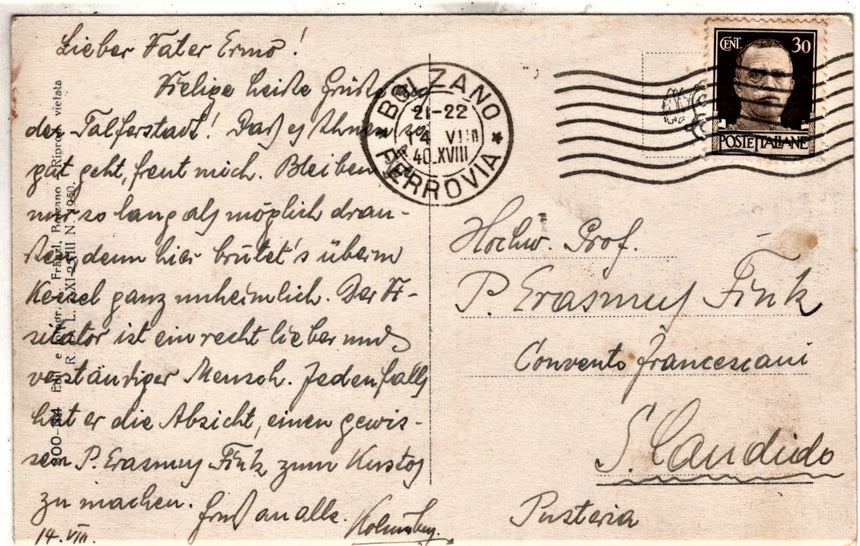 Lieber Pater Ermo!
Vielige heiße Grüße aus
der Talferstadt! Daß es Ihnen so
gut geht, freut mich. Bleiben
nur so lang als möglich drau-
ßen, denn hier brütet's überm
Kessel ganz unheimlich. Der Vi-
sitator ist ein recht lieber und
verständiger Mensch. Jedenfalls
hat er die Absicht, einen gewis-
sen P. Erasmus Fink zum Kustos
zu machen. Gruß an alle.
14. VIII.
BOLZANO
21-22
14 VIII
40.XVIII
FERROVIA
CENT. 30
POSTE ITALIANE
Hochw. Prof.
P. Erasmus Fink
Convento francescani
S. Candido
Pusteria
Fränzl, Bolzano - Riprod. vietata